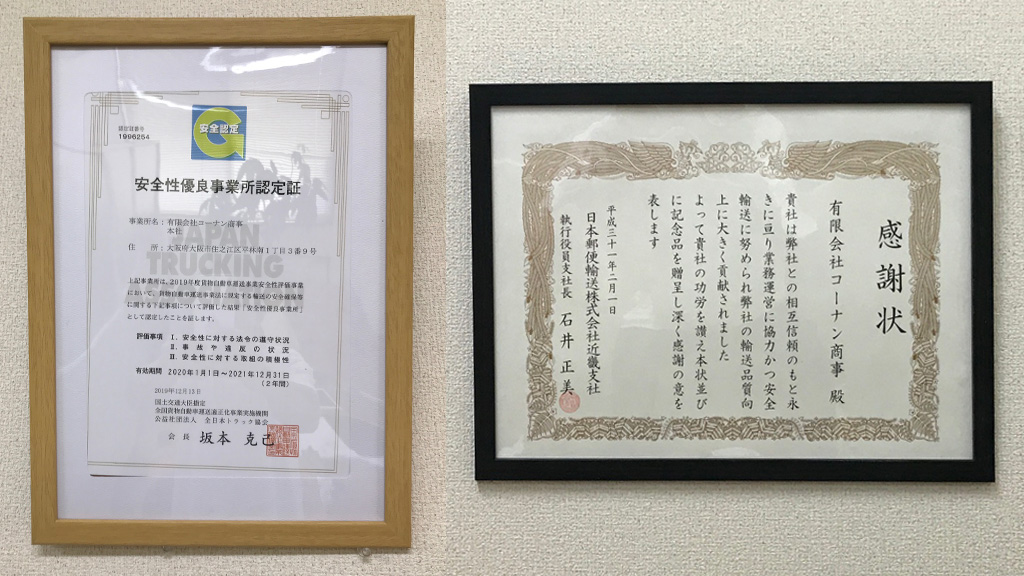 認定証番号
1996254
安全認定
G
安全性優良事業所認定証
事業所名：有限会社コーナン商事
本社
住　所：大阪府大阪市住之江区平林南１丁目３番９号
JAPAN
TRUCKING
上記事業所は、2019年度貨物自動車運送事業安全性評価事業
において、貨物自動車運送事業法に規定する輸送の安全確保等
に関する下記事項について評価した結果「安全性優良事業所」
として認定したことを証します。
評価事項　Ⅰ．安全性に対する法令の遵守状況
Ⅱ．事故や違反の状況
Ⅲ．安全性に対する取組の積極性
有効期間　2020年1月1日～2021年12月31日
（２年間）
2019年12月13日
国土交通大臣指定
全国貨物自動車運送適正化事業実施機関
公益社団法人　全日本トラック協会
会長　坂本 克己
感謝状
有限会社コーナン商事　殿
貴社は弊社との相互信頼のもと永
きに亘り業務運営に協力かつ安全
輸送に努められ弊社の輸送品質向
上に大きく貢献されました
よって貴社の功労を讃え本状並び
に記念品を贈呈し深く感謝の意を
表します
平成三十一年二月一日
日本郵便輸送株式会社近畿支社
執行役員支社長　石井 正美